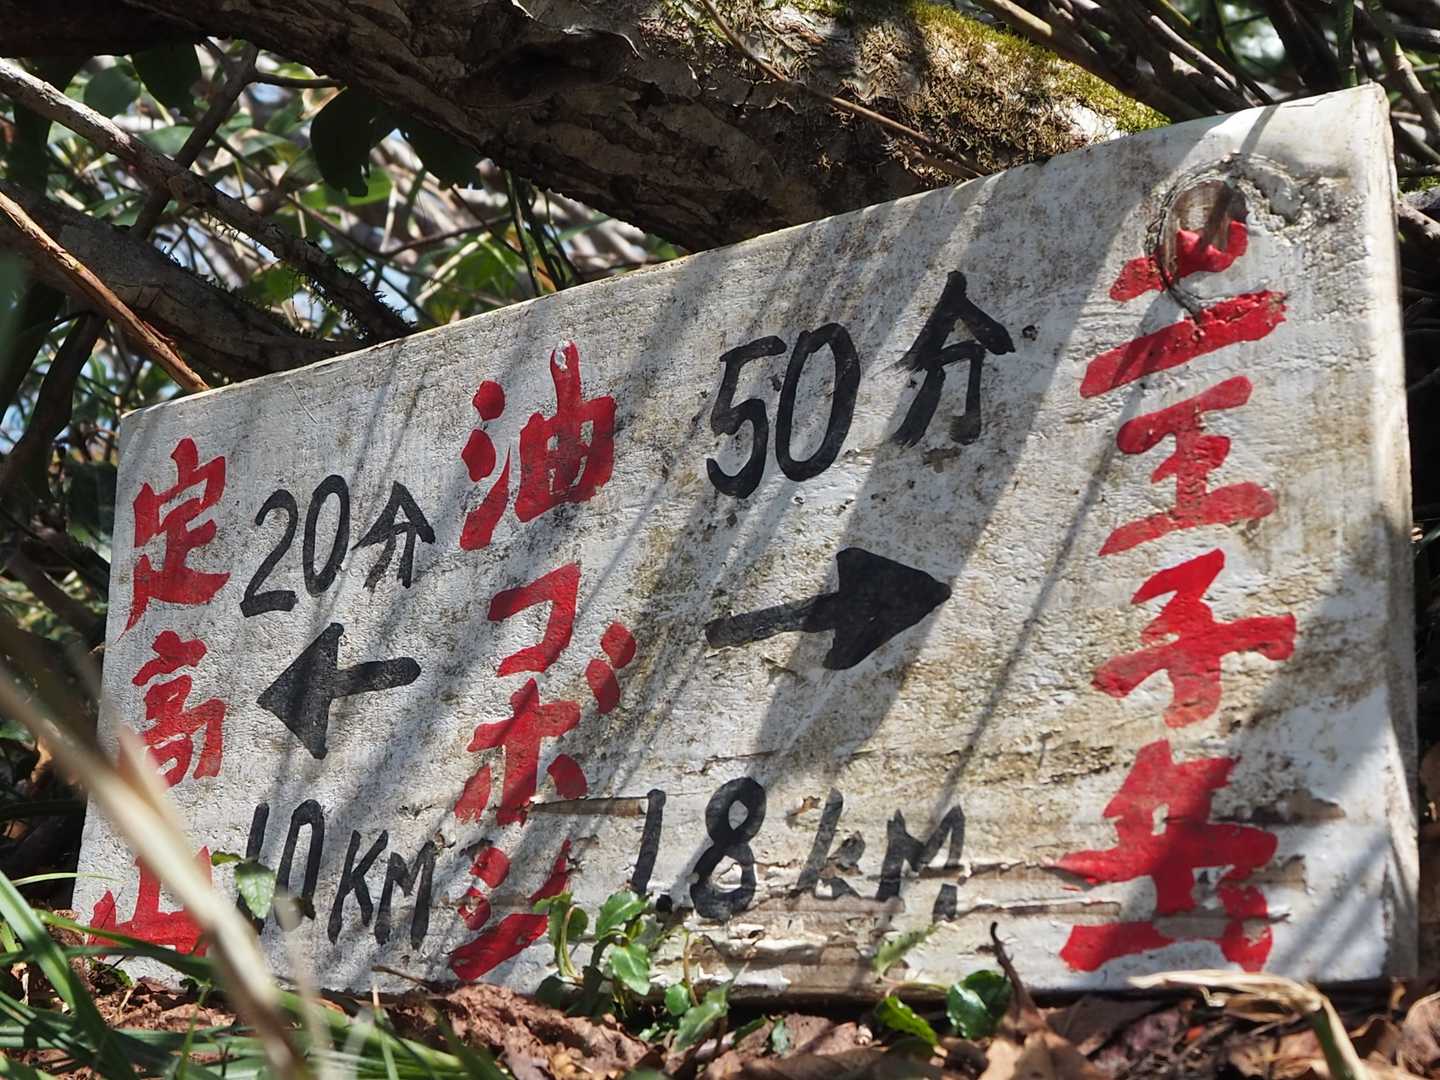 定高山
20分
←
10KM
油コボシ
50分
→
1.8KM
二王子岳